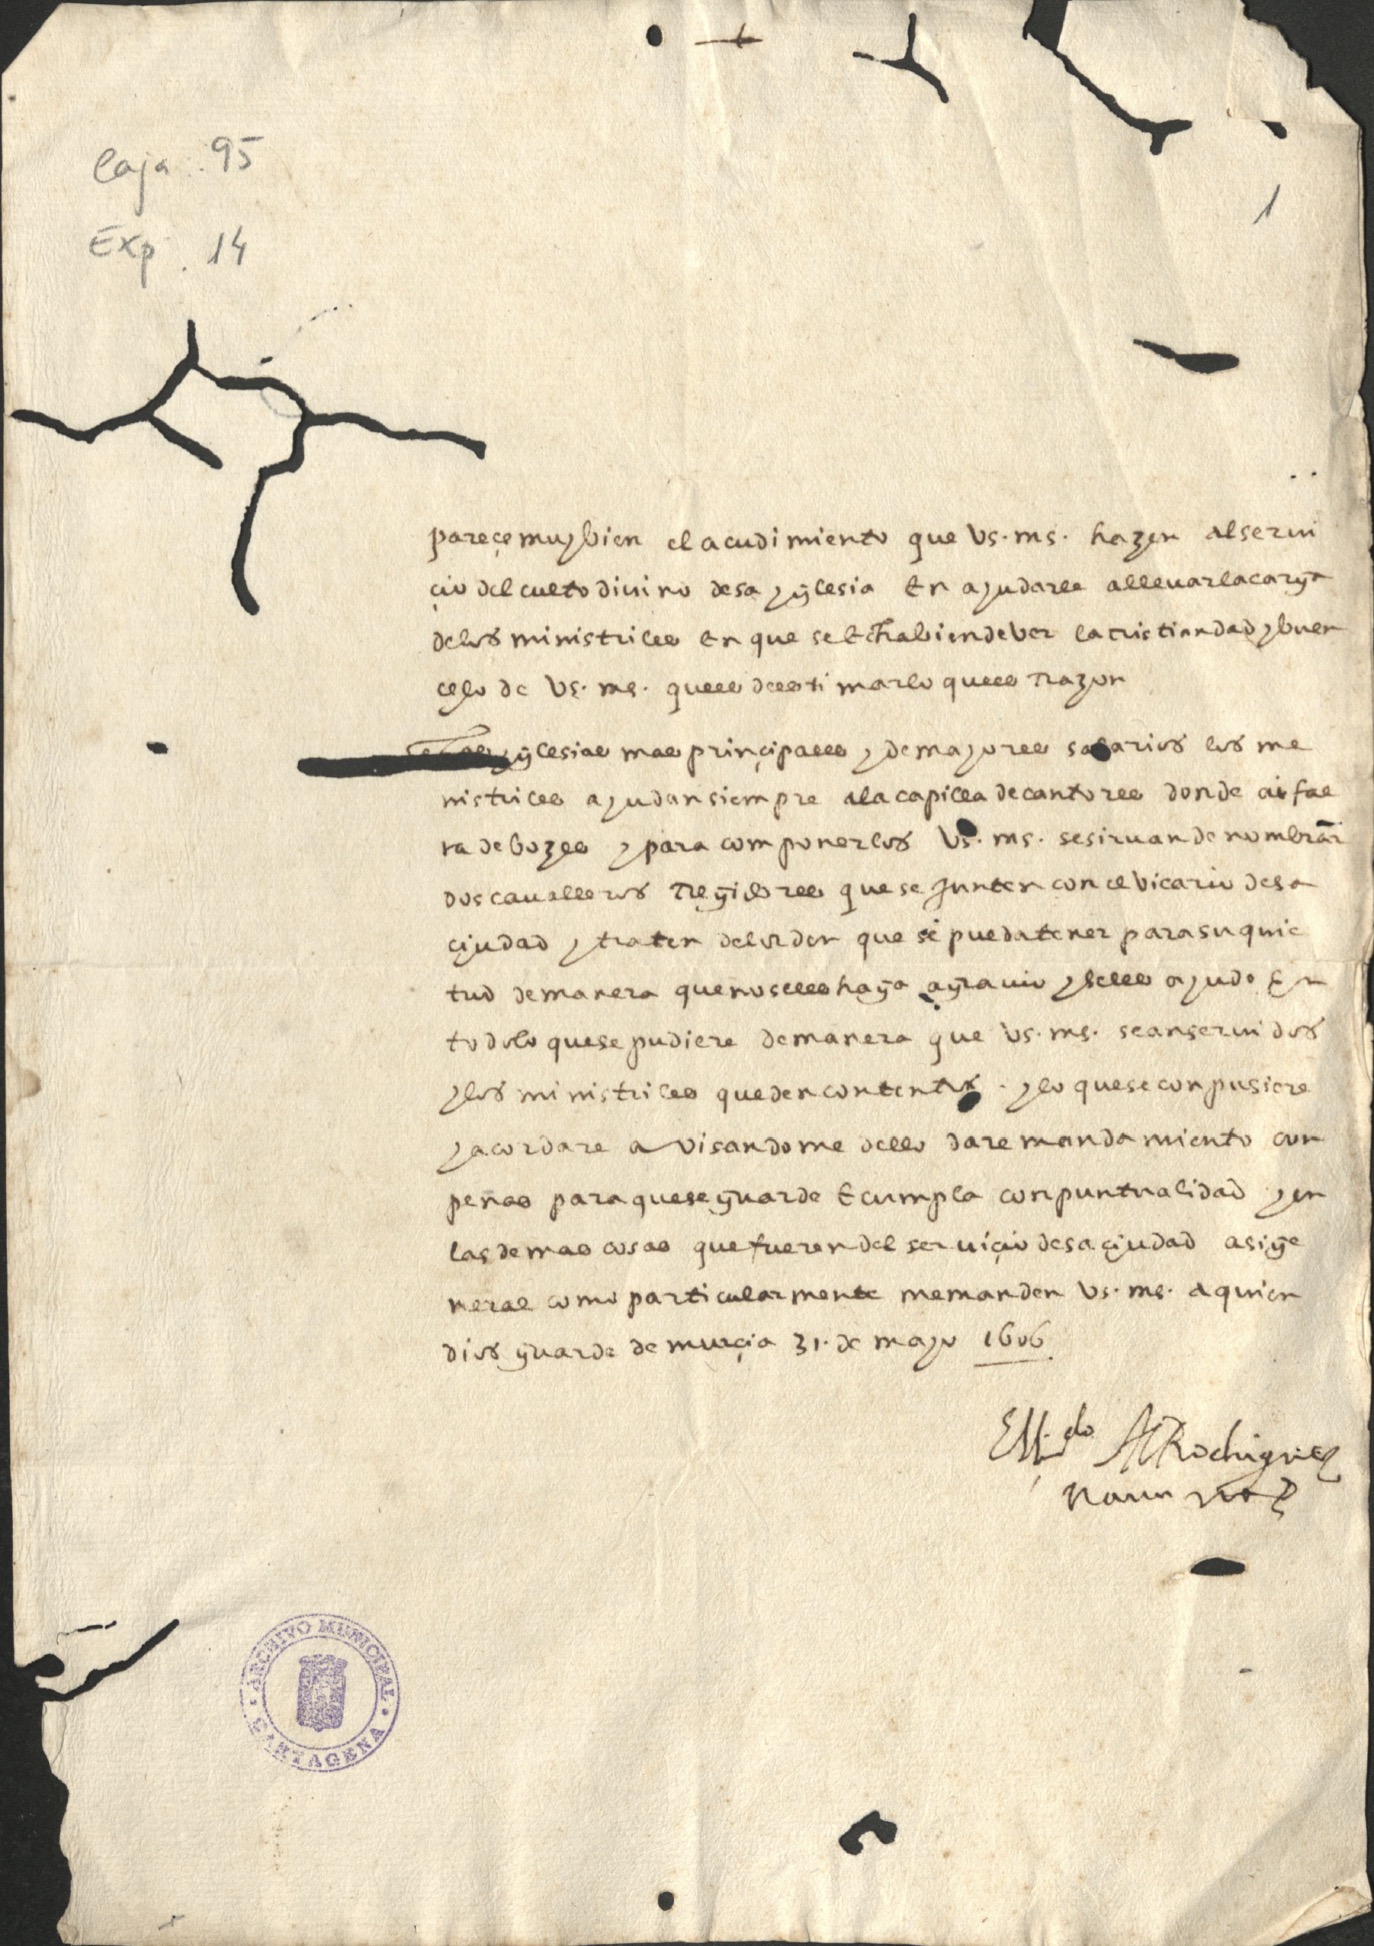 Caja . 95
Exp . 14
1
pareçe muy bien el acudimiento que Vs. ms. hazen al serui
çio del culto diuino desa yglesia En ayudarle a lleuar la carga
de los ministriles En que se Echa bien de Ver la cristiandad y buen
çelo de Vs. ms. que es de estimarlo que es Razon
yglesias mas prinçipales y de mayores salarios los me
nistriles ayudan siempre a la capilla de cantores donde ai fal
ta de bozes y para componerlos Vs. ms. se siruan de nombrar
dos caualleros Regidores que se Junten con el Vicario desa
çiudad y traten del orden que se pueda tener para su quie
tud de manera que no se les haga agrauio y se les ayude En
todo lo que se pudiere de manera que Vs. ms. sean seruidos
y los ministriles queden contentos . y lo que se conpusiere
y acordare avisandome dello dare mandamiento con
penas para que se guarde E cumpla con puntualidad y en
las demas cosas que fueren del seruiçio desa çiudad asi ge
neral como particularmente me manden Vs. ms. a quien
dios guarde de murçia 31. de mayo 1606
El Liçdo A Rodriguez
ARCHIVO MUNICIPAL
CARTAGENA